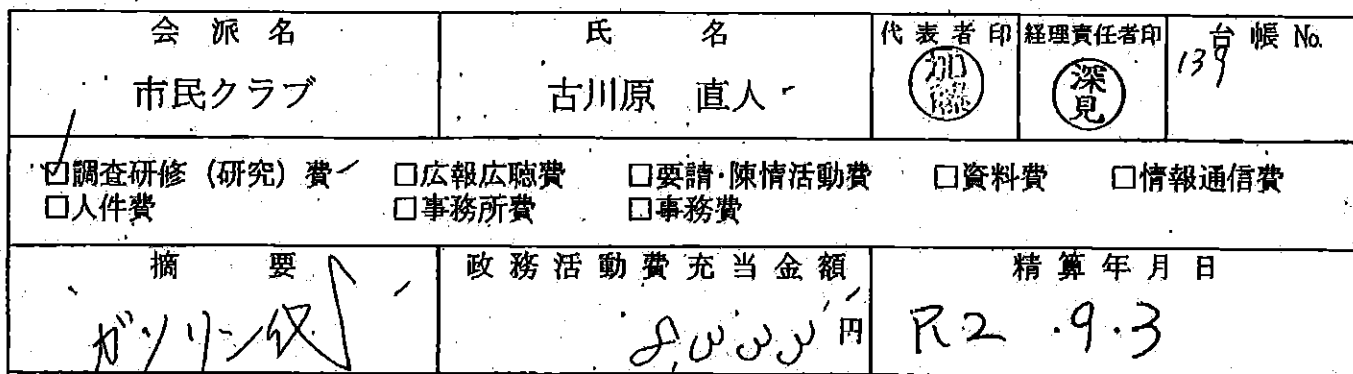 会派名 氏名 代表者印 経理責任者印 台帳 No.
市民クラブ 古川原 直人 加藤 深見 139
☑調査研修（研究）費 □広報広聴費 □要請・陳情活動費 □資料費 □情報通信費
□人件費 □事務所費 □事務費
摘要 政務活動費充当金額 精算年月日
ガソリン代 8,333円 R2.9.3